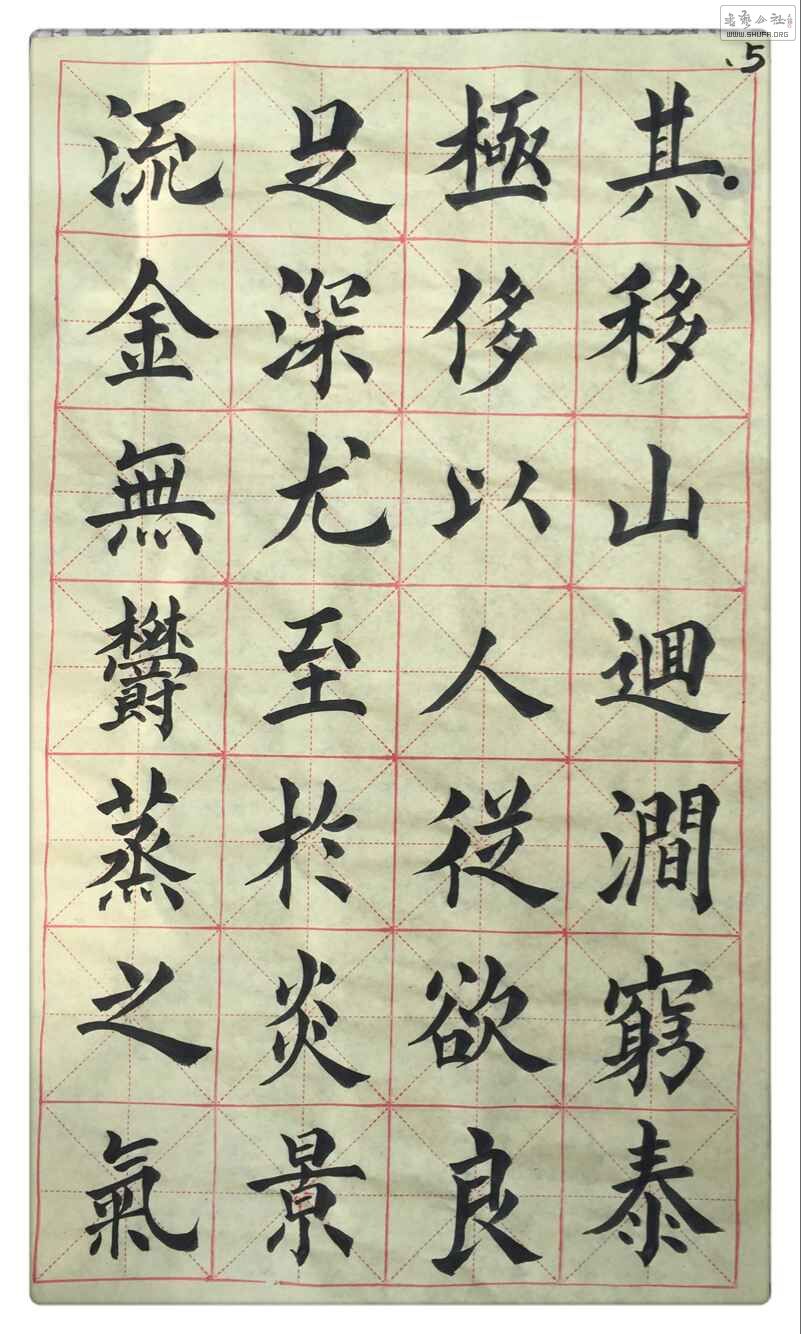 .5
其移山迴澗窮泰
極侈以人從欲良
足深尤至於炎景
流金無欝蒸之氣
书艺公社
WWW.SHUFA.ORG